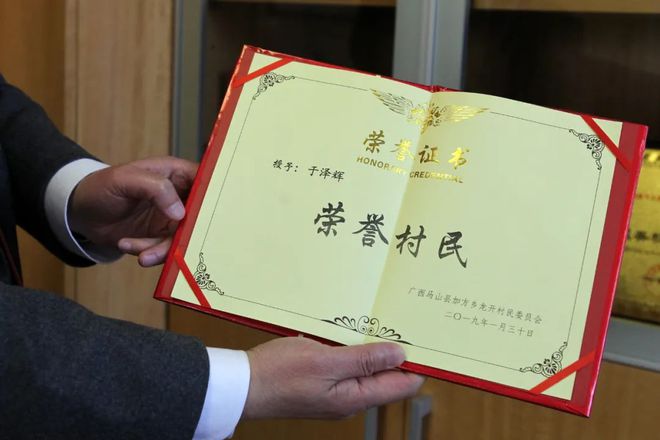 荣誉证书
HONORARY CREDENTIAL
授号：于泽辉
荣誉村民
广西马山县加方乡龙开村民委员会
二〇一九年一月三十日